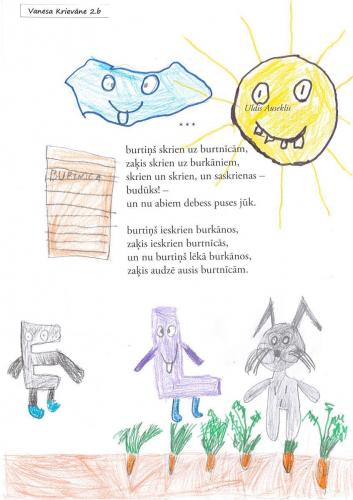 Vanesa Krievāne 2.b
Uldis Auseklis
* * *
burtiņš skrien uz burtnīcām,
zaķis skrien uz burkāniem,
skrien un skrien, un saskrienas –
budūks! –
un nu abiem debess puses jūk.
BURTNICA
burtiņš ieskrien burkānos,
zaķis ieskrien burtnīcās,
un nu burtiņš lēkā burkānos,
zaķis audzē ausis burtnīcām.